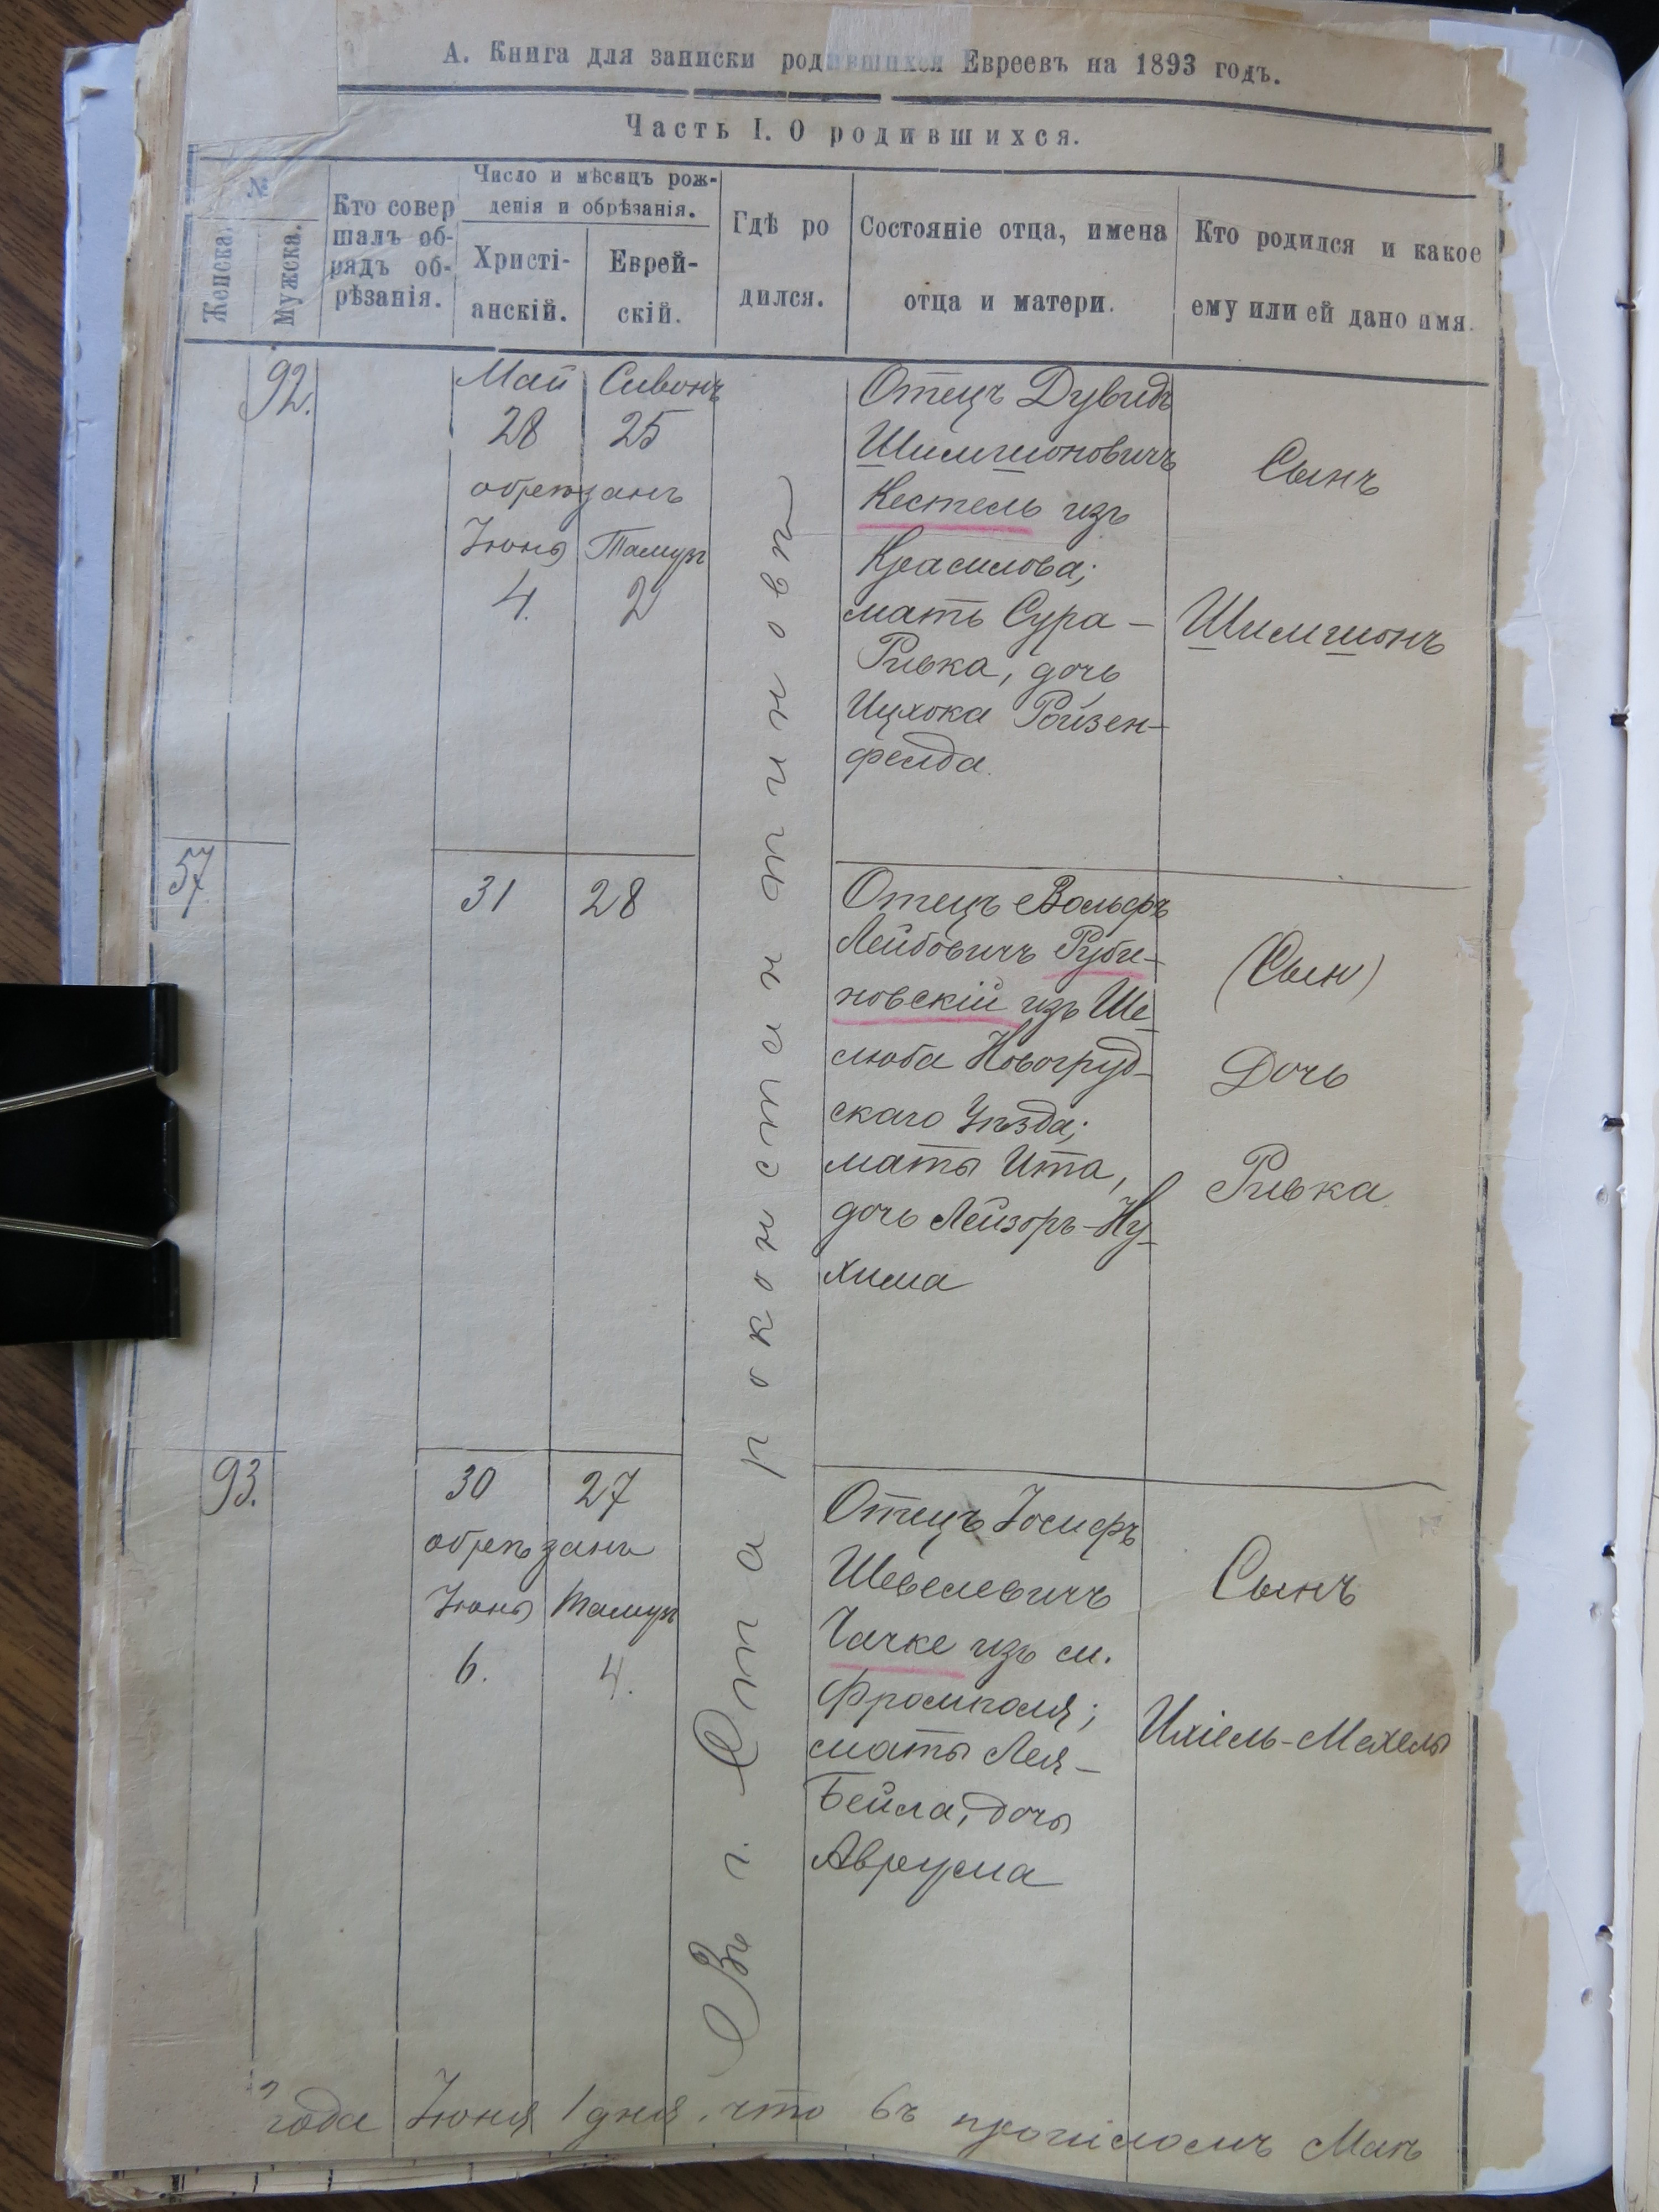 А. Книга для записки родившихся Евреевъ на 1893 годъ.
Часть I. О родившихся.
№
Женска.
Мужска.
Кто совер
шалъ об-
рядъ об-
рѣзанія.
Число и мѣсяцъ рож-
денія и обрѣзанія.
Христі-
анскій.
Еврей-
скій.
Гдѣ ро
дился.
Состояніе отца, имена
отца и матери.
Кто родился и какое
ему или ей дано имя.
92.
Май Сивонъ
28 25
обрѣзанъ
Іюня Тамузъ
4. 2
Отецъ Дувидъ
Шимшоновичъ
Кестель изъ
Красилова;
мать Сура-
Ривка, дочь
Ицхока Ройзен-
фелда.
Сынъ
Шимшонъ
57
31 28
Отецъ Вольфъ
Лейбовичъ Руби-
новскій изъ Ше-
люба Новогруд-
скаго Уѣзда;
мать Ита,
дочь Лейзоръ-Ну-
хима
(Сын)
Дочь
Ривка.
93.
30 27
обрѣзанъ
Іюня Тамузъ
6. 4.
Отецъ Іосифъ
Шевелевичъ
Чачке изъ м.
Фрамполя;
мать Лея-
Бейла, дочь
Аврума
Сынъ
Ихіель-Мехель
Въ г. Староконстантиновѣ
года Іюня 1 дня, что въ прошломъ Маѣ